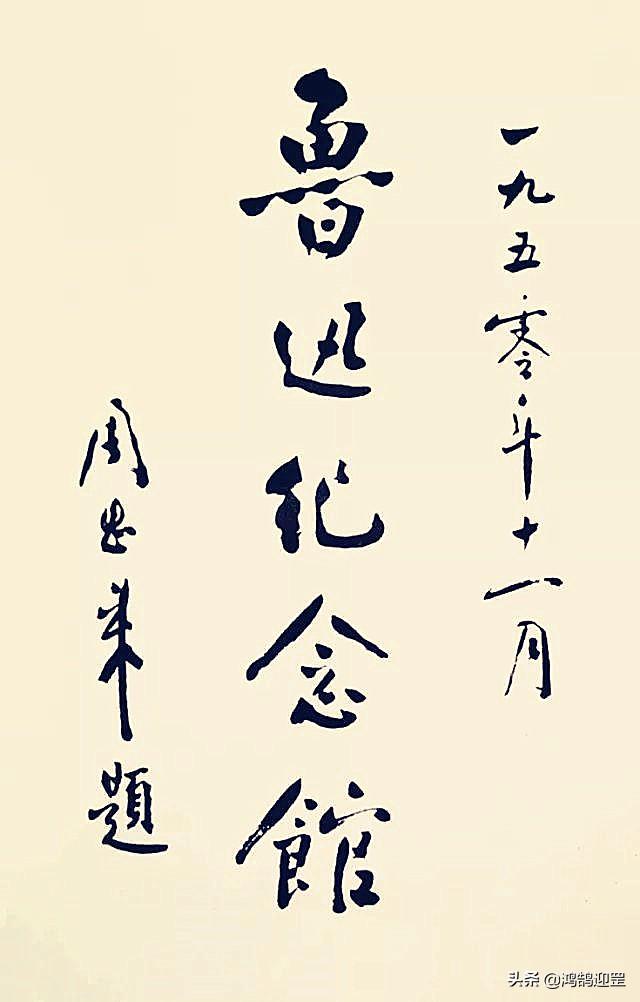 一九五零年十一月
魯迅紀念館
周恩來題
头条 @鸿鹄迎罡